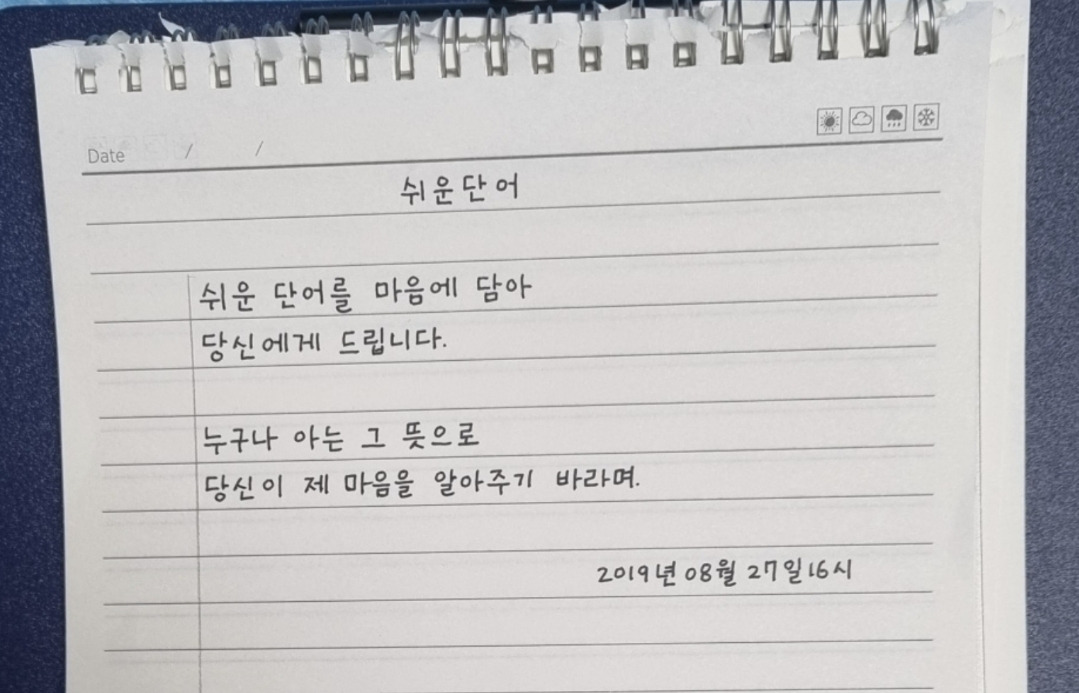 Date / /
쉬운단어
쉬운 단어를 마음에 담아
당신에게 드립니다.
누구나 아는 그 뜻으로
당신이 제 마음을 알아주기 바라며.
2019년 08월 27일 16시